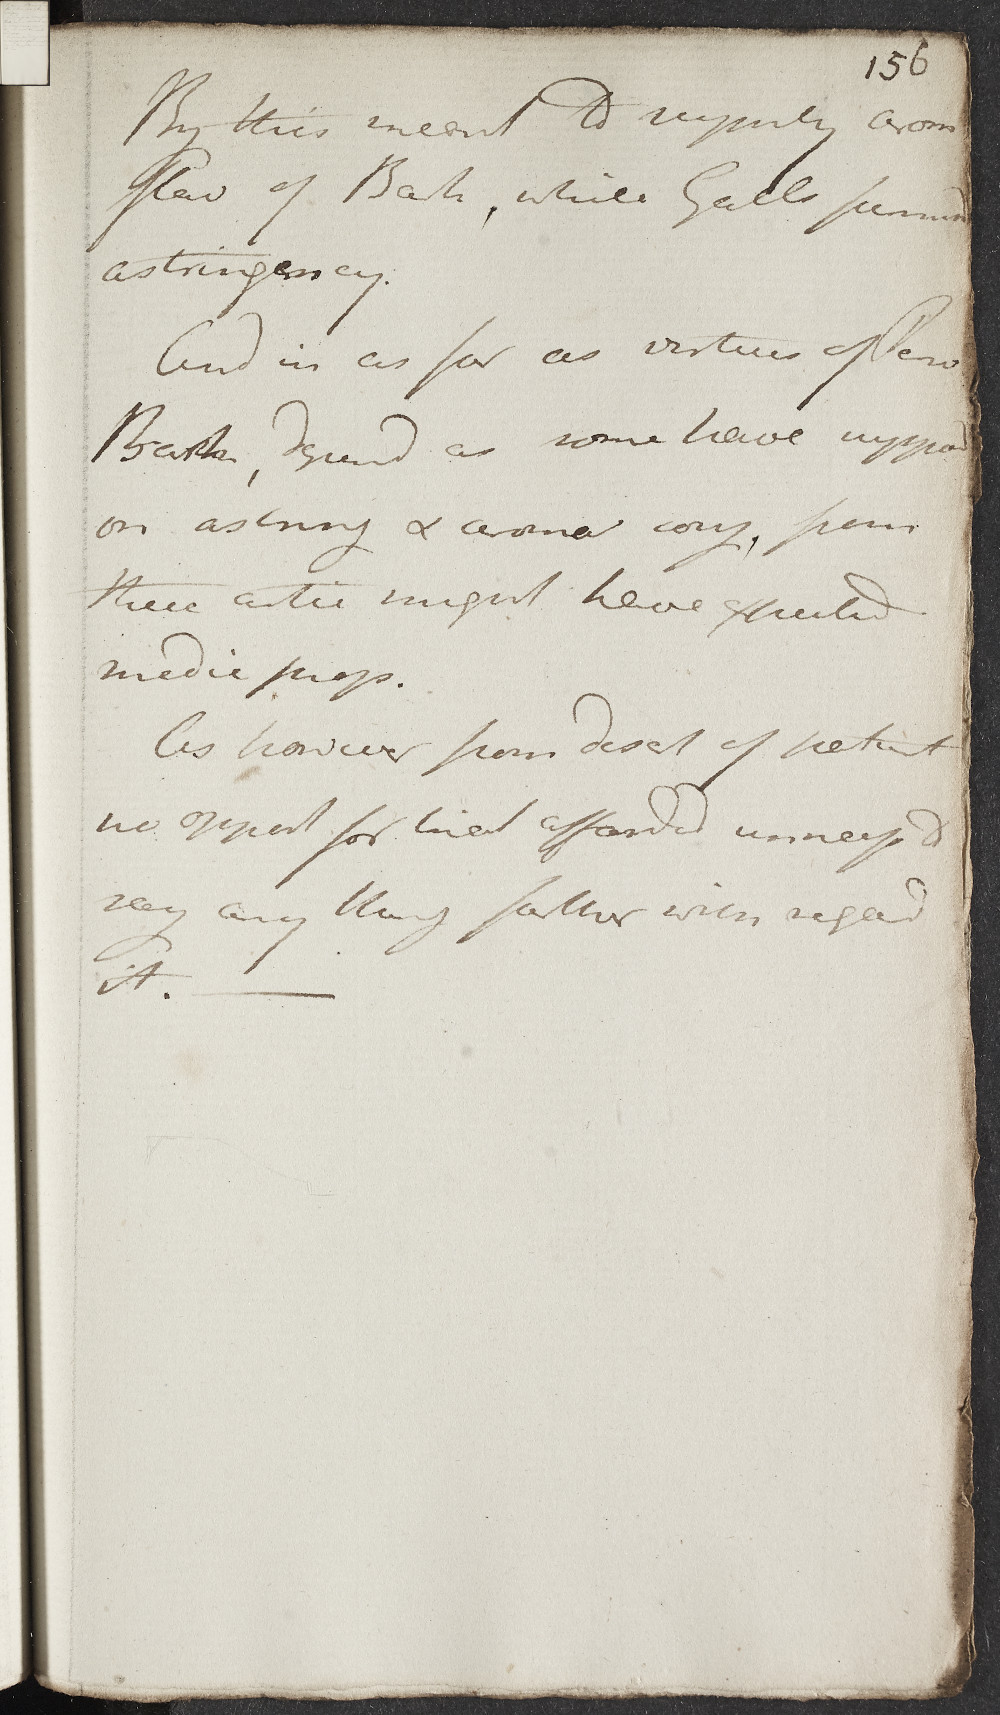 156
By this meant to supply arom
flav of Bark, while Galls furnish
astringency.
And in as far as virtues of Peruv
Bark, depend as some have suppos
on astring & aroma conj, from
these artic might have expected
medic props.
As however from defect of patent
no opport for trial afforded unnecess to
say any thing farther with regard
it.